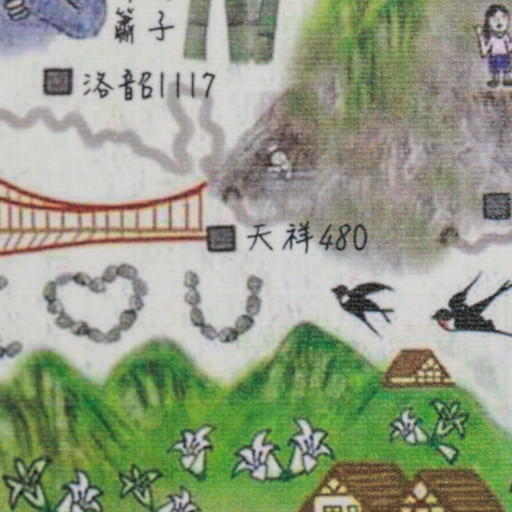 簫子
洛韶1117
天祥480
I ♡ U